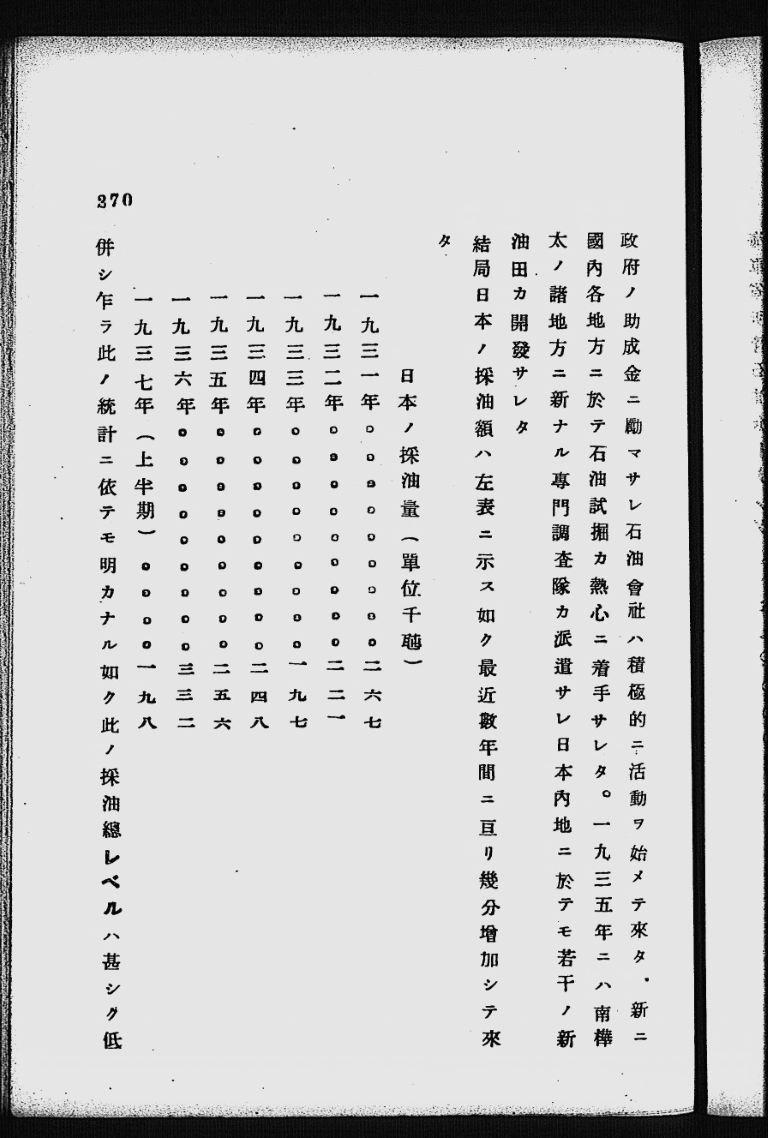 政府ノ助成金ニ勵マサレ石油會社ハ積極的ニ活動ヲ始メテ來タ．新ニ
國內各地方ニ於テ石油試掘カ熱心ニ着手サレタ。一九三五年ニハ南樺
太ノ諸地方ニ新ナル專門調査隊カ派遣サレ日本內地ニ於テモ若干ノ新
油田カ開發サレタ
結局日本ノ採油額ハ左表ニ示ス如ク最近數年間ニ亘リ幾分增加シテ來
タ
日本ノ採油量（單位千瓲）
一九三一年。。。。。。。。。二六七
一九三二年。。。。。。。。。二二一
一九三三年。。。。。。。。。一九七
一九三四年。。。。。。。。。二四八
一九三五年。。。。。。。。。二五六
一九三六年。。。。。。。。。三三二
一九三七年（上半期）。。。。一九八
併シ乍ラ此ノ統計ニ依テモ明カナル如ク此ノ採油總レベルハ甚シク低
370